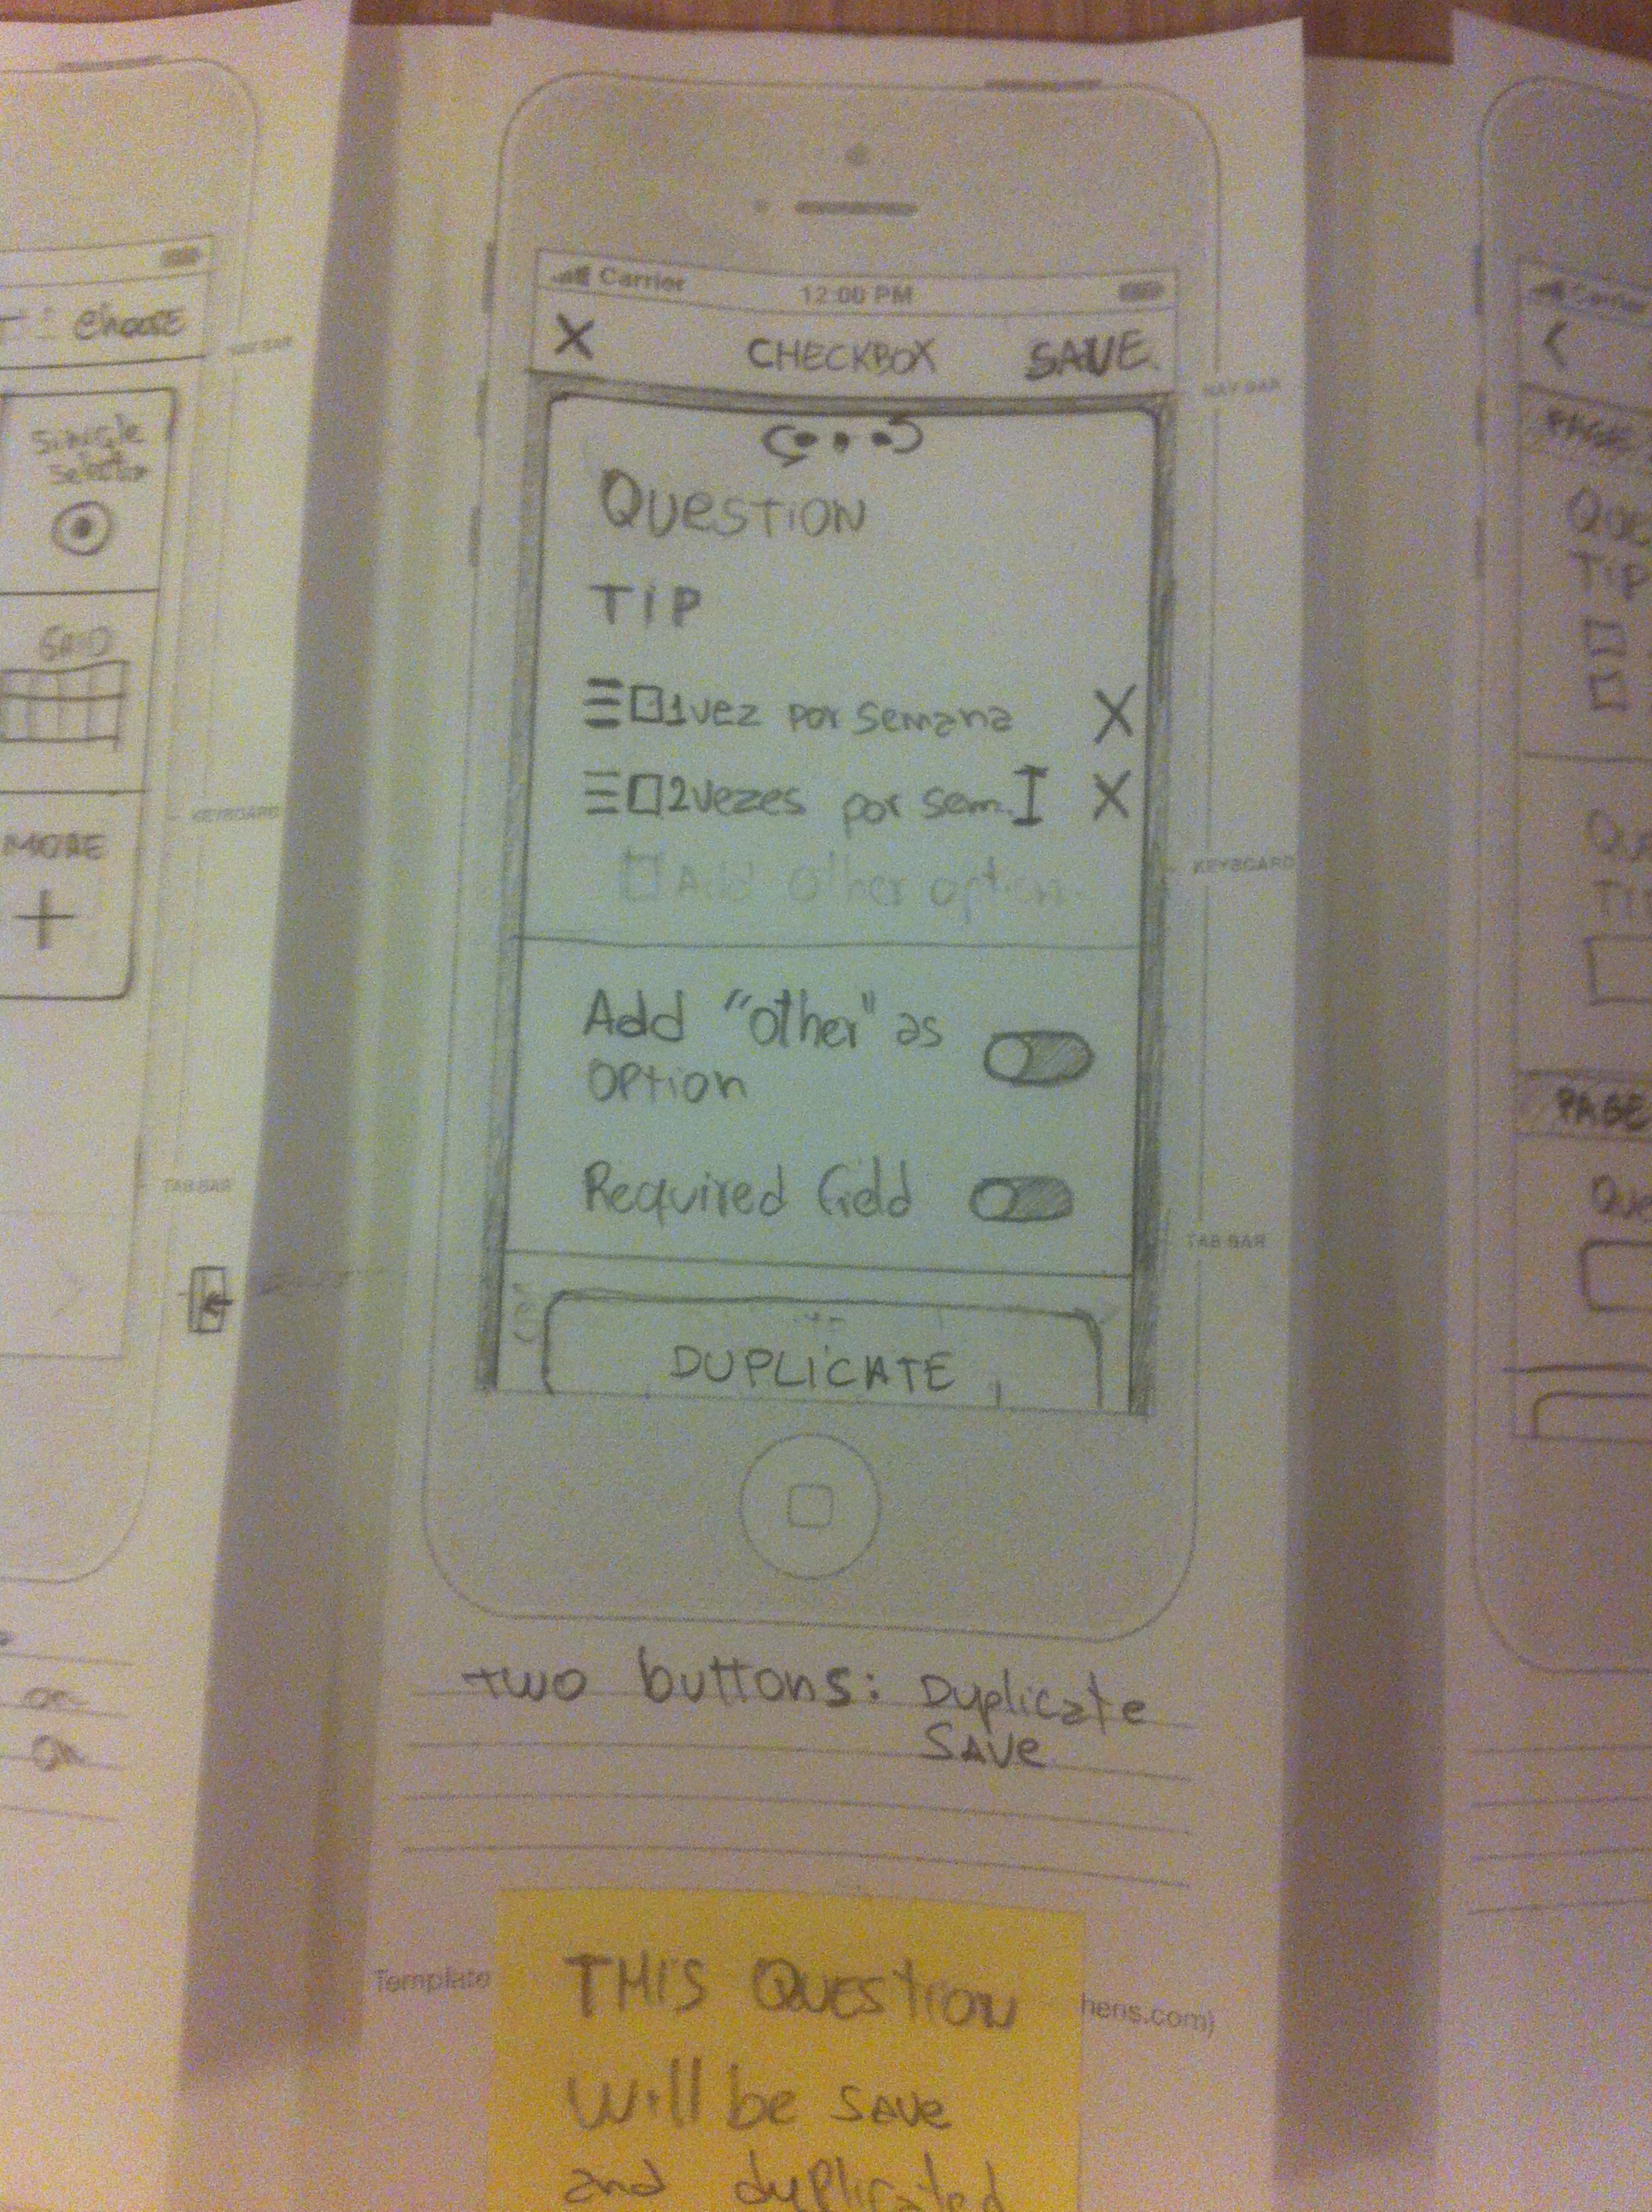 Choose
Single
Selection
GRID
MORE
KEYBOARD
TAB BAR
on
on
Carrier
12:00 PM
X CHECKBOX SAVE
NAV BAR
Question
TIP
1 vez por semana X
2 vezes por sem. X
Add other option
KEYBOARD
Add "other" as
option
Required field
TAB BAR
DUPLICATE
two buttons: Duplicate
Save
Template
hens.com)
THIS Question
Will be save
and duplicated
PAGE
Que
TIP
Qu
TI
PAGE
Que